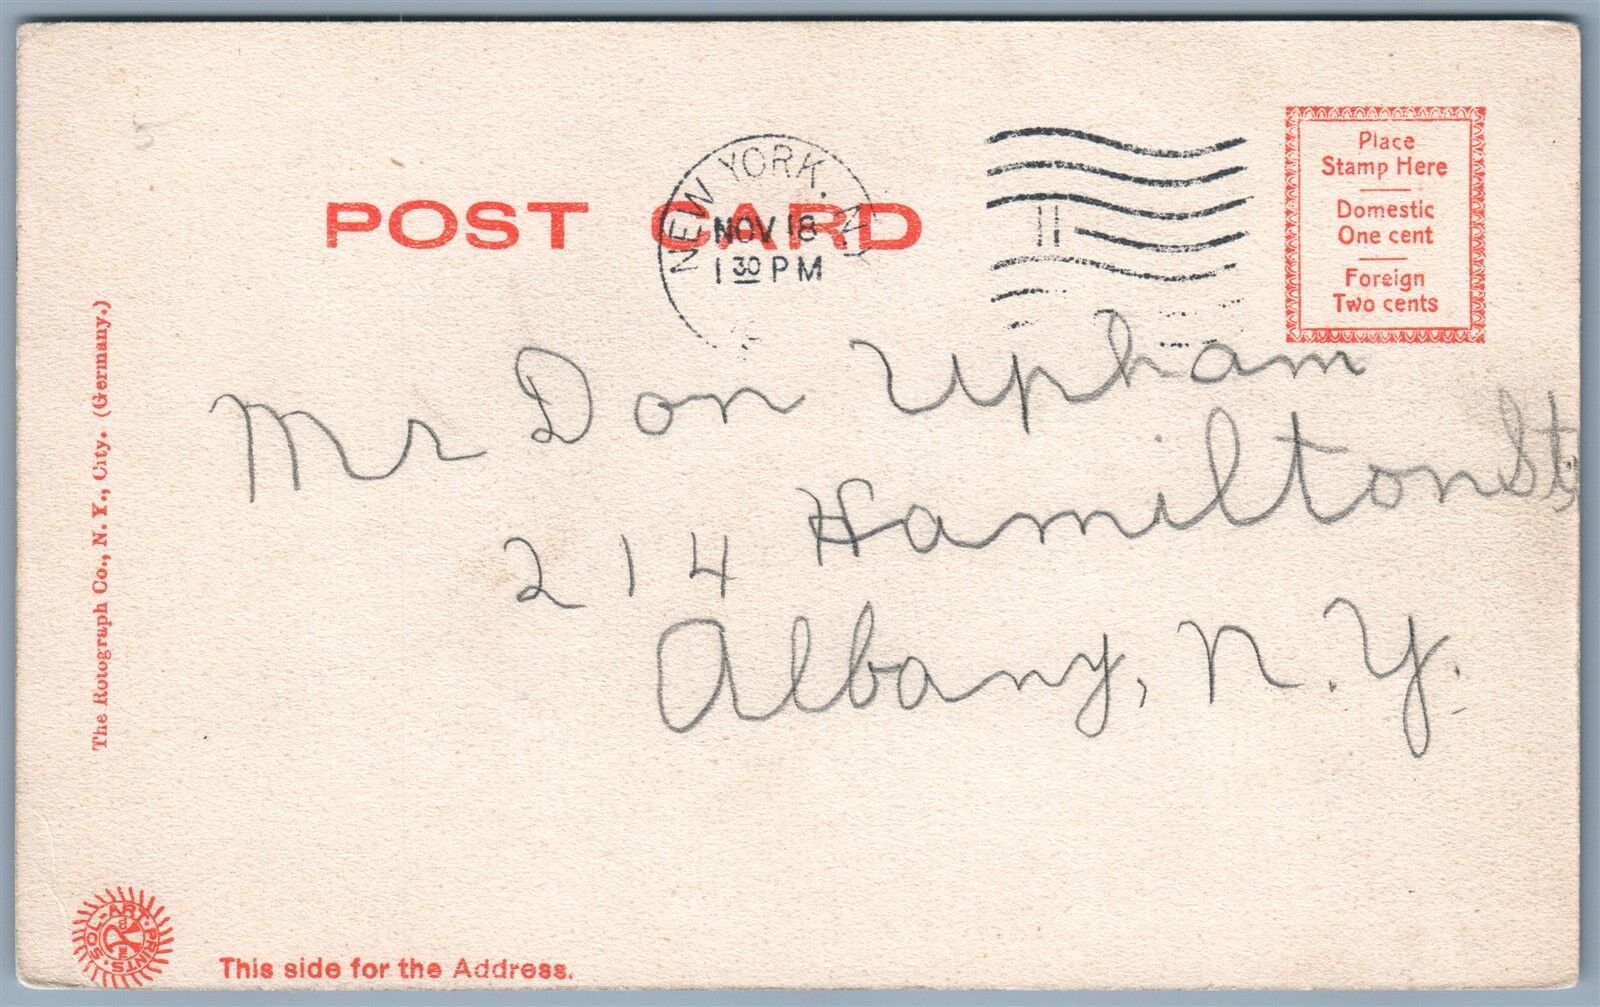 POST CARD
NEW YORK, N.Y.
NOV 18
1 30 PM
11
Place
Stamp Here
Domestic
One cent
Foreign
Two cents
The Rotograph Co., N. Y., City. (Germany.)
Mr Don Upham
214 Hamilton St
Albany, N.Y.
SOL-ART PRINTS
This side for the Address.